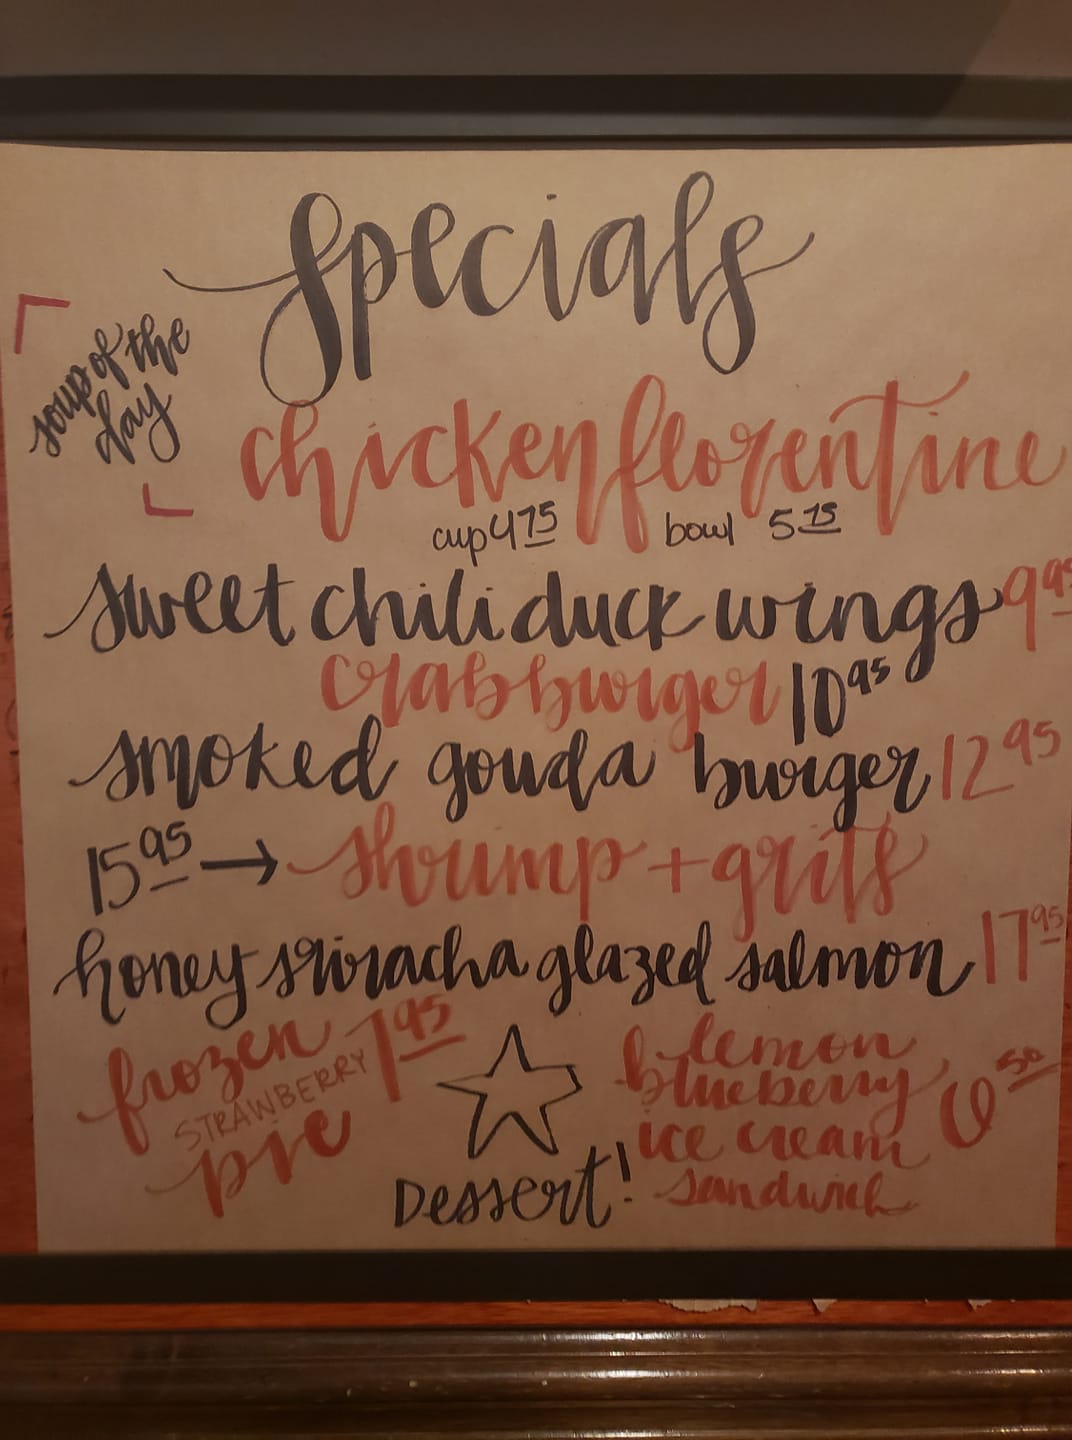 Specials
soup of the
day
chicken florentine
cup 4 75 bowl 5 75
sweet chili duck wings 9 95
crab burger 10 95
smoked gouda burger 12 95
15 95 → shrimp + grits
honey sriracha glazed salmon 17 95
frozen 7 95
STRAWBERRY
pie
Dessert!
lemon
blueberry 6 50
ice cream
sandwich